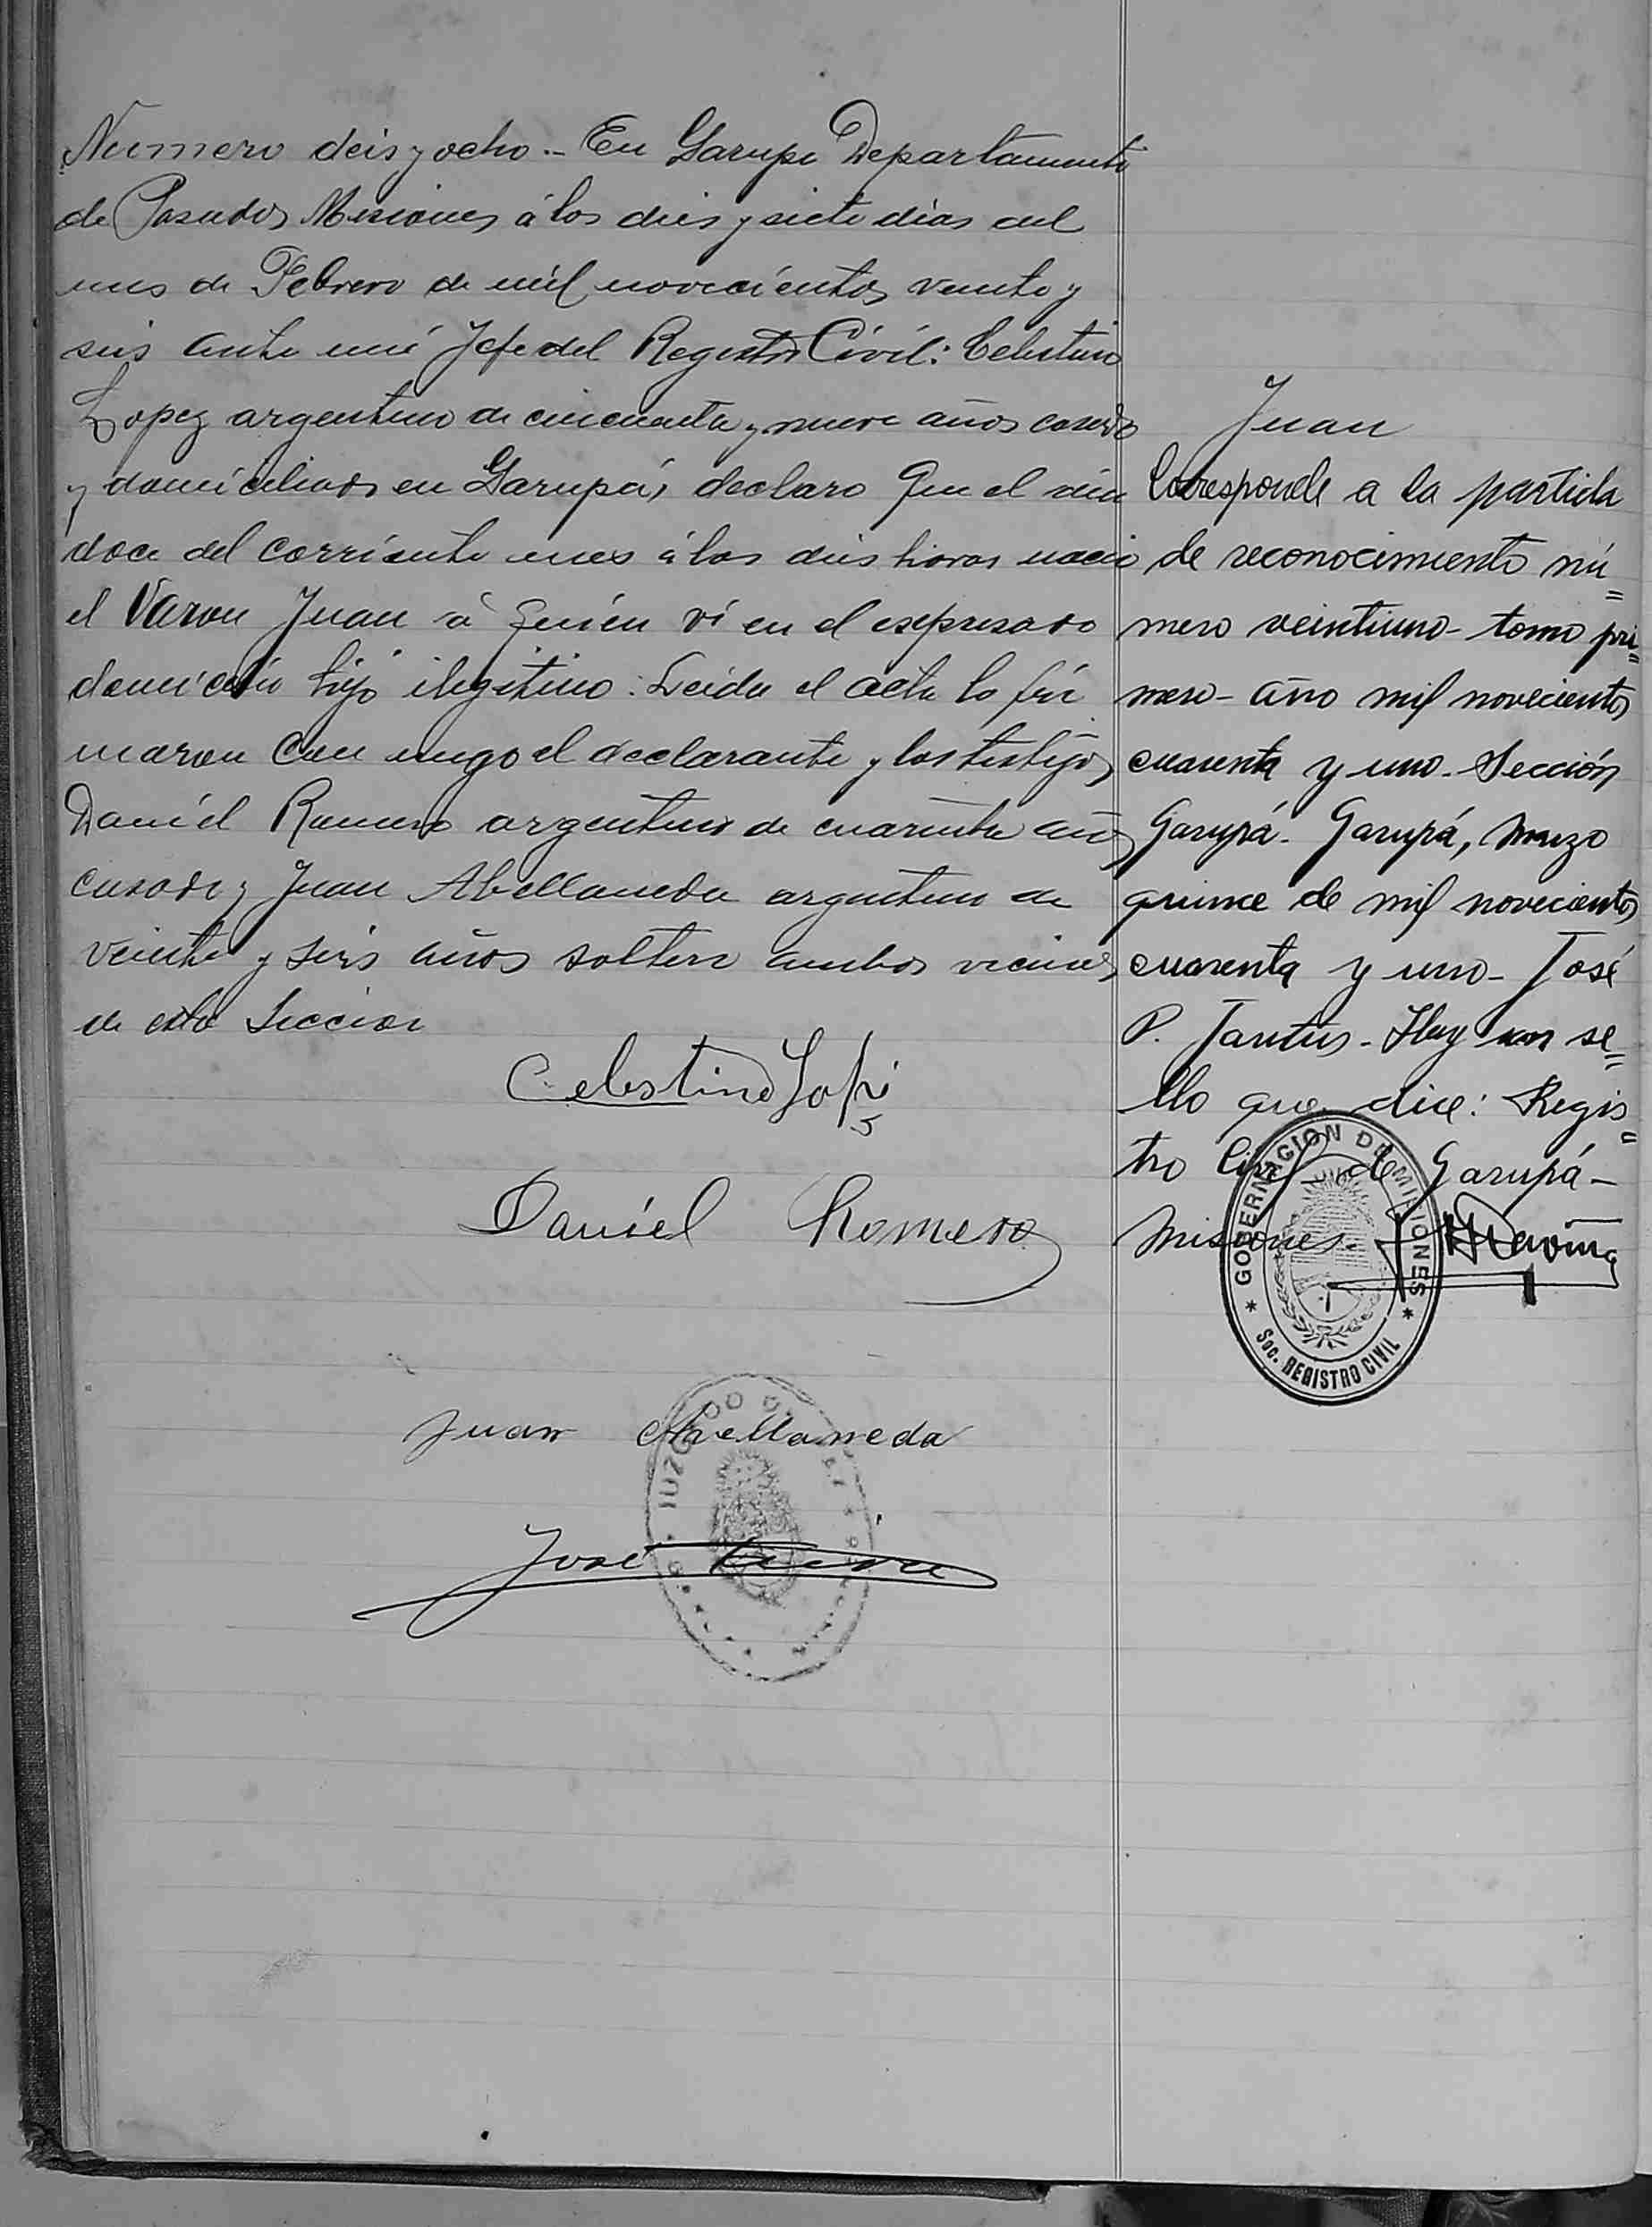 Numero deis y ocho.- En Garupa Departamento
de Posadas Misiones á los dies y siete dias del
mes de Febrero de mil novecientos veinte y
seis ante mi Jefe del Registro Civil: Celestino
Lopez argentino de cincuenta y nueve años casado
y domiciliado en Garupá, declaro Que el dia
doce del corriente mes á las dies horas nacio
el Varon Juan á quien ví en el espresado
domicilio hijo ilegitimo: Leida el acta la fir
maron con migo el declarante y los testigos
Daniel Romero argentino de cuarenta años
casado y Juan Abellaneda argentino de
veinte y seis años soltero ambos vecinos
de esta Seccion
Celestino Lopez
Daniel Romero
Juan Avellaneda
José
Juan
Corresponde a la partida
de reconocimiento nú=
mero veintiuno- tomo pri=
mero- año mil novecientos
cuarenta y uno- Sección
Garupá- Garupá, Marzo
quince de mil novecientos
cuarenta y uno- José
P. Tantus- Hay un se=
llo que dice: Regis=
tro Civil de Garupá-
Misiones.-
GOBERNACION DE MISIONES
Soc. REGISTRO CIVIL